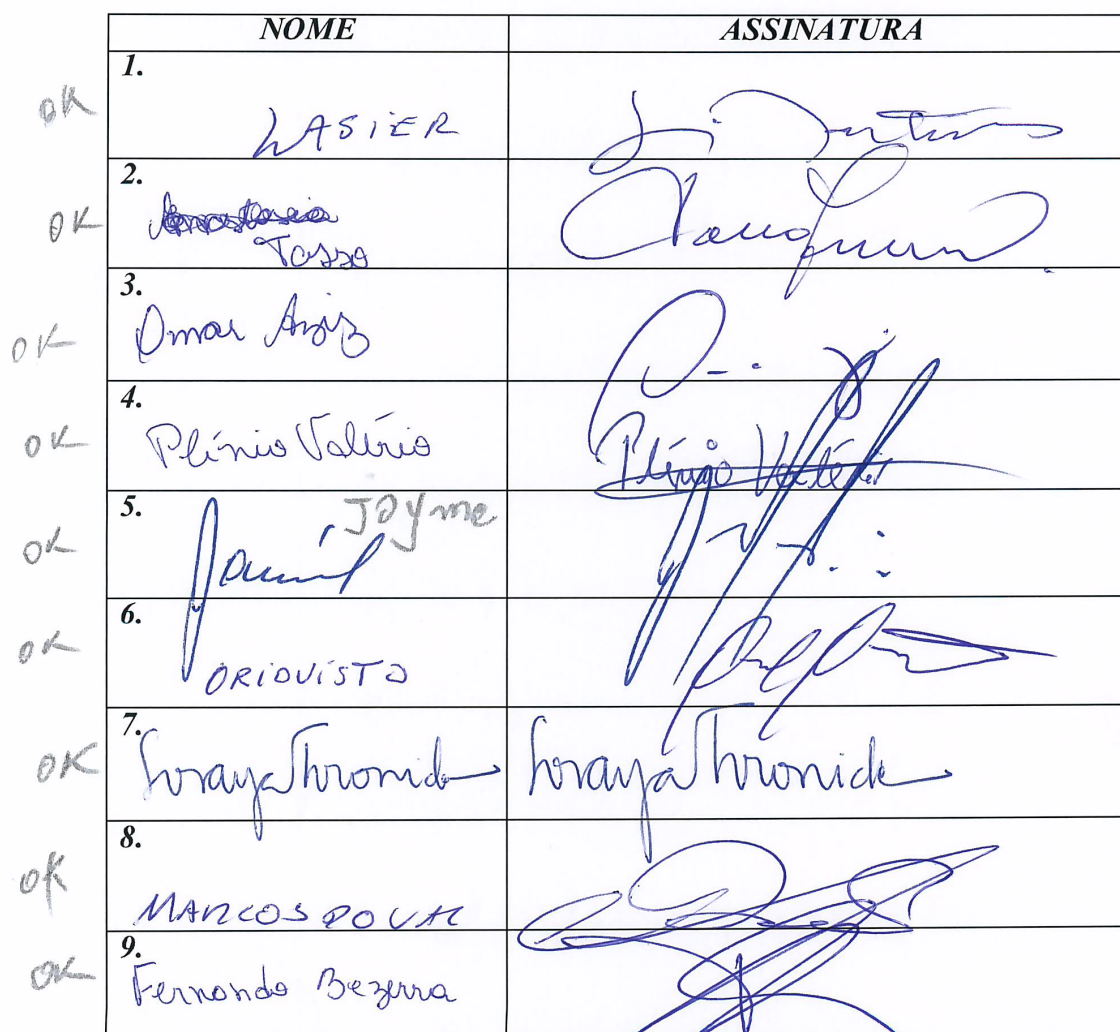 NOME ASSINATURA
1.
OK LASIER
2.
OK Anastasia
Tasso
3.
OK Omar Aziz
4.
OK Plínio Valério Plínio Valério
5.
Jayme
OK
6.
OK ORIOVISTO
7.
OK Soraya Thronicke Soraya Thronicke
8.
OK MARCOS DO VAL
9.
OK Fernando Bezerra